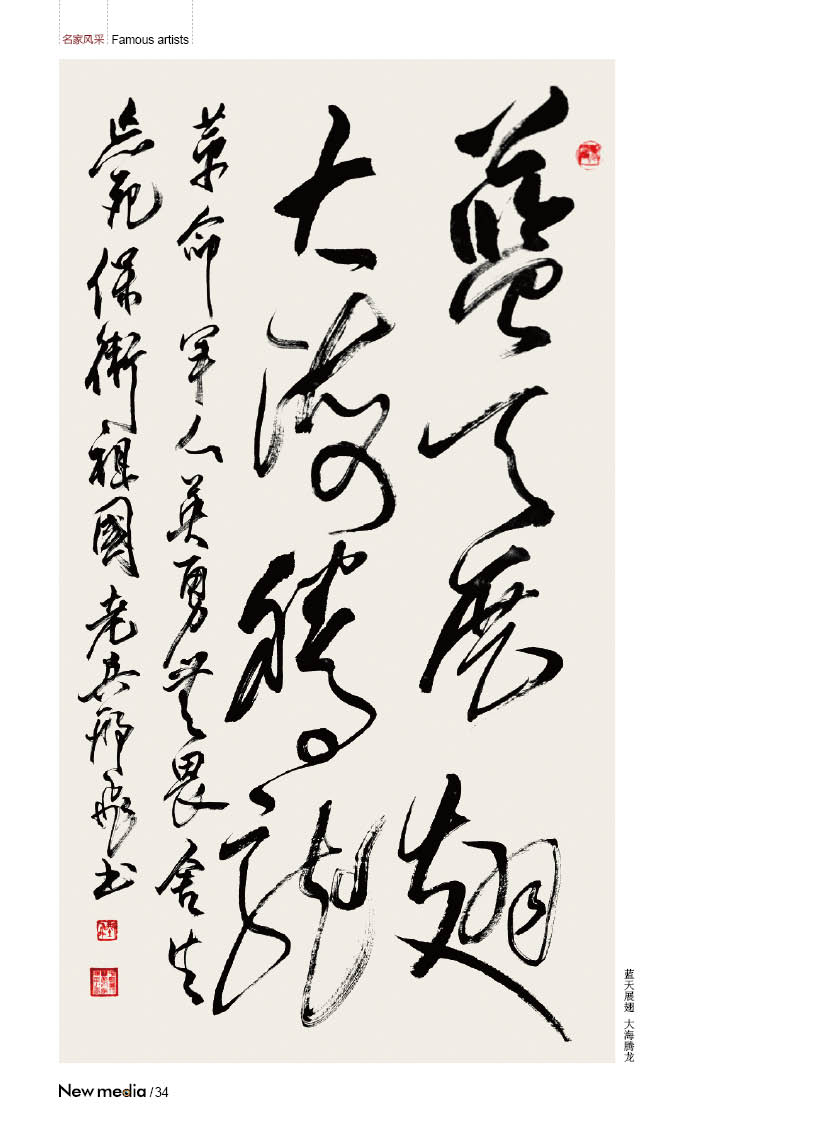 名家风采
Famous artists
藍天展翅
大海騰龍
革命军人英勇無畏舍生
忘死保衛祖國老兵邢飛书
蓝天展翅 大海腾龙
New media /34